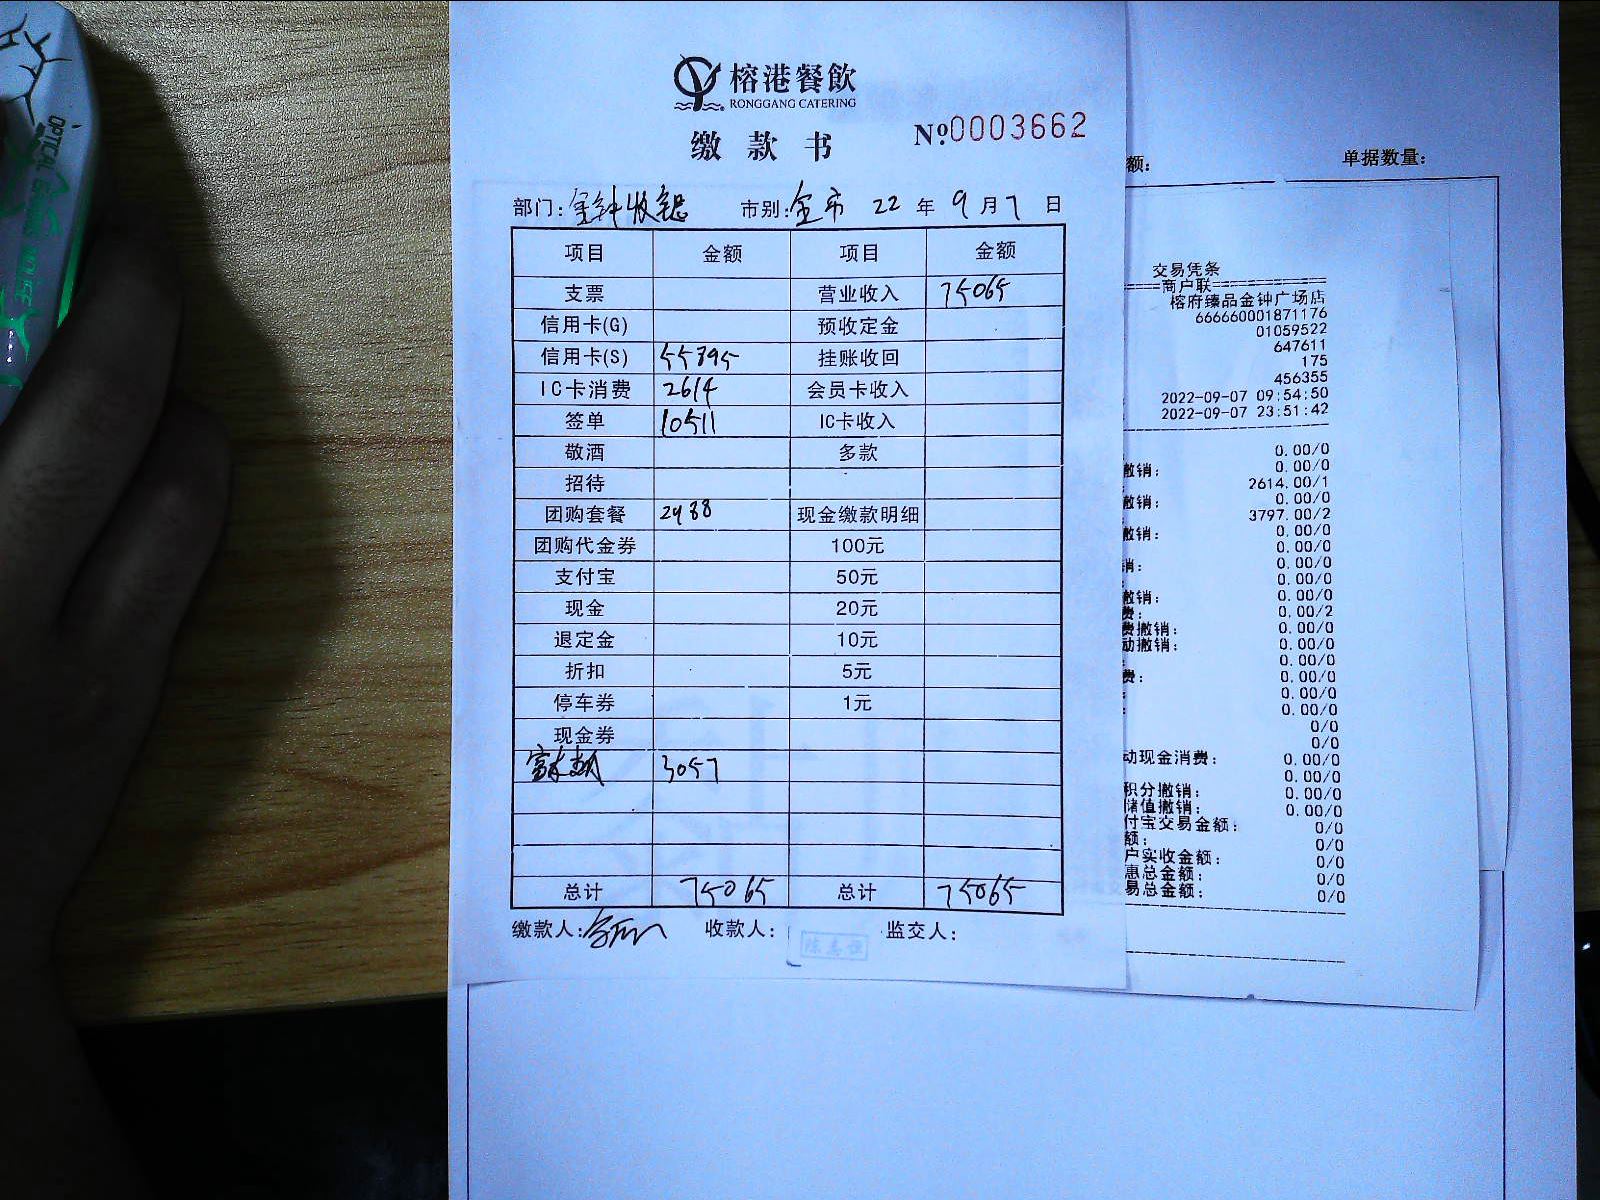 榕港餐飲
RONGGANG CATERING
缴款书
№.0003662
部门:金钟收银 市别:全市 22 年 9 月 7 日
项目 金额 项目 金额
支票 营业收入 75065
信用卡(G) 预收定金
信用卡(S) 55395 挂账收回
IC卡消费 2614 会员卡收入
签单 10511 IC卡收入
敬酒 多款
招待
团购套餐 2488 现金缴款明细
团购代金券 100元
支付宝 50元
现金 20元
退定金 10元
折扣 5元
停车券 1元
现金券
3057
总计 75065 总计 75065
缴款人: 收款人: 监交人:
额: 单据数量:
交易凭条
=====商户联=====
榕府臻品金钟广场店
666660001871176
01059522
647611
175
456355
2022-09-07 09:54:50
2022-09-07 23:51:42
0.00/0
撤销: 0.00/0
2614.00/1
撤销: 0.00/0
3797.00/2
撤销: 0.00/0
0.00/0
销: 0.00/0
0.00/0
撤销: 0.00/0
费: 0.00/2
费撤销: 0.00/0
动撤销: 0.00/0
0.00/0
费: 0.00/0
0.00/0
: 0.00/0
0/0
0/0
动现金消费: 0.00/0
0.00/0
积分撤销: 0.00/0
储值撤销: 0.00/0
付宝交易金额: 0/0
额: 0/0
户实收金额: 0/0
惠总金额: 0/0
易总金额: 0/0
OPTICAL GAMING MOUSE